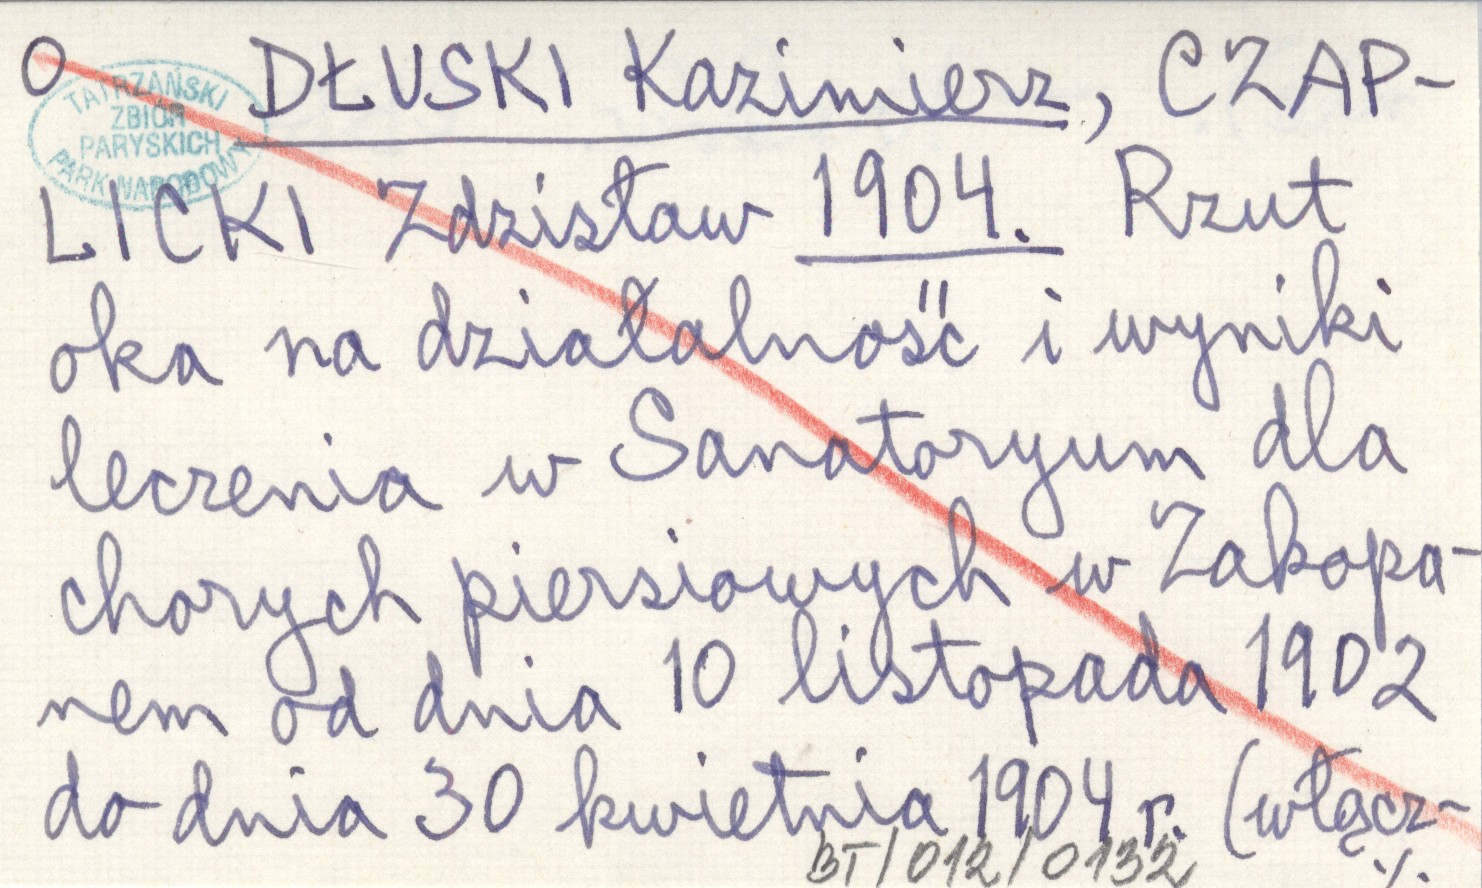 O DŁUSKI Kazimierz, CZAP-
TATRZAŃSKI
ZBIÓR
PARYSKICH
PARK NARODOWY
LICKI Zdzisław 1904. Rzut
oka na działalność i wyniki
leczenia w Sanatoryum dla
chorych piersiowych w Zakopa-
nem od dnia 10 listopada 1902
do dnia 30 kwietnia 1904 r. (włącz-
BT/012/0132 ./.